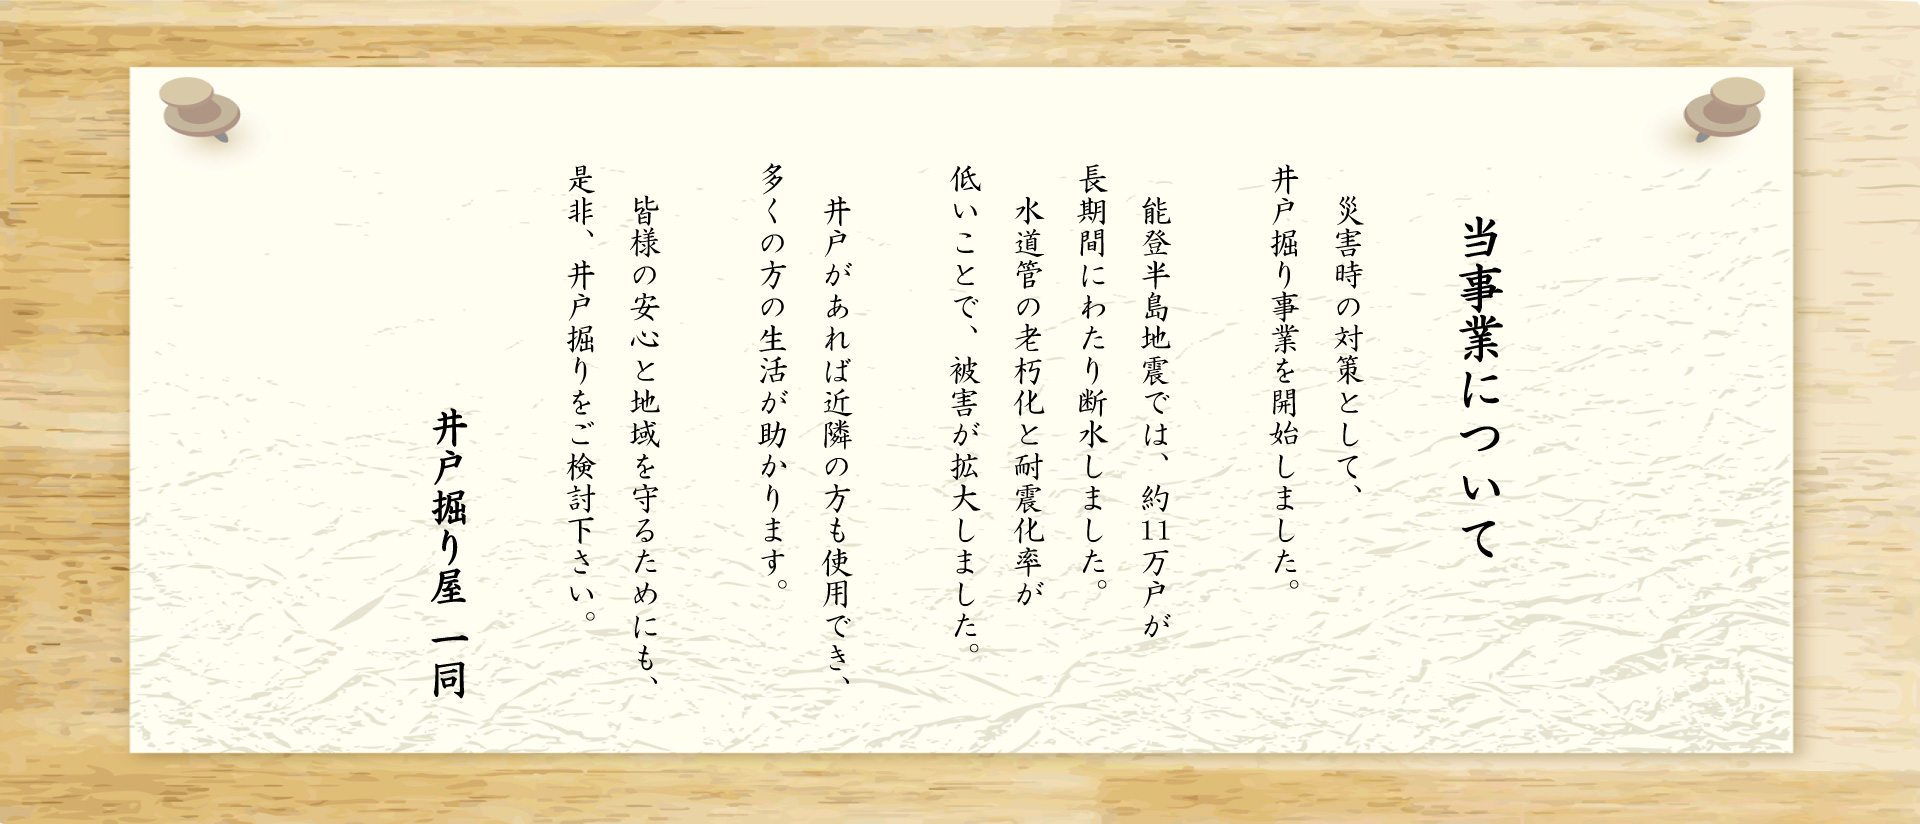 当事業について
災害時の対策として、
井戸掘り事業を開始しました。
能登半島地震では、約11万戸が
長期間にわたり断水しました。
水道管の老朽化と耐震化率が
低いことで、被害が拡大しました。
井戸があれば近隣の方も使用でき、
多くの方の生活が助かります。
皆様の安心と地域を守るためにも、
是非、井戸掘りをご検討下さい。
井戸掘り屋 一同